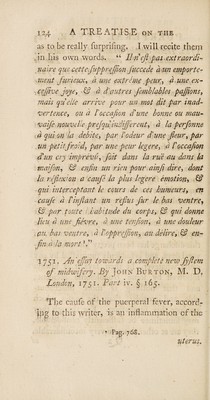 124 A TREATISE ON THE
as to be really surprising. I will recite them
in his own words. “ Il n'est pas extraordi-
naire que cette suppression succede à un emporte-
ment furieux, à une extrême peur, à une ex-
cessive joye, & à d'autres semblables passions,
mais qu'elle arrive pour un mot dit par inad-
vertence, ou à l'occasion d'une bonne ou mau-
vaise nouvelle presqu'indifferent, à la personne
à qui on la debite, par l'odeur d'une fleur, par
un petit froid, par une peur legere, à l'occasion
d'un cry imprévû, soit dans la ruë au dans la
maison, & enfin un rien pour ainsi dire, dont
la réfléxion a causé la plus legere émotion, &
qui interceptant le cours de ces humeurs, en
cause à l'instant un reflus sur le bas ventre,
& par toute l'habitude du corps, & qui donne
lieu à une fiévre, à une tension, à une douleur
au bas ventre, à l'oppression, au delire, & en-
fin à la mort.”
1751. An essay towards a complete new system
of midwifery. By JOHN BURTON, M. D.
London, 1751. Part iv. § 165.
The cause of the puerperal fever, accord-
ing to this writer, is an inflammation of the
Pag. 768.
uterus.